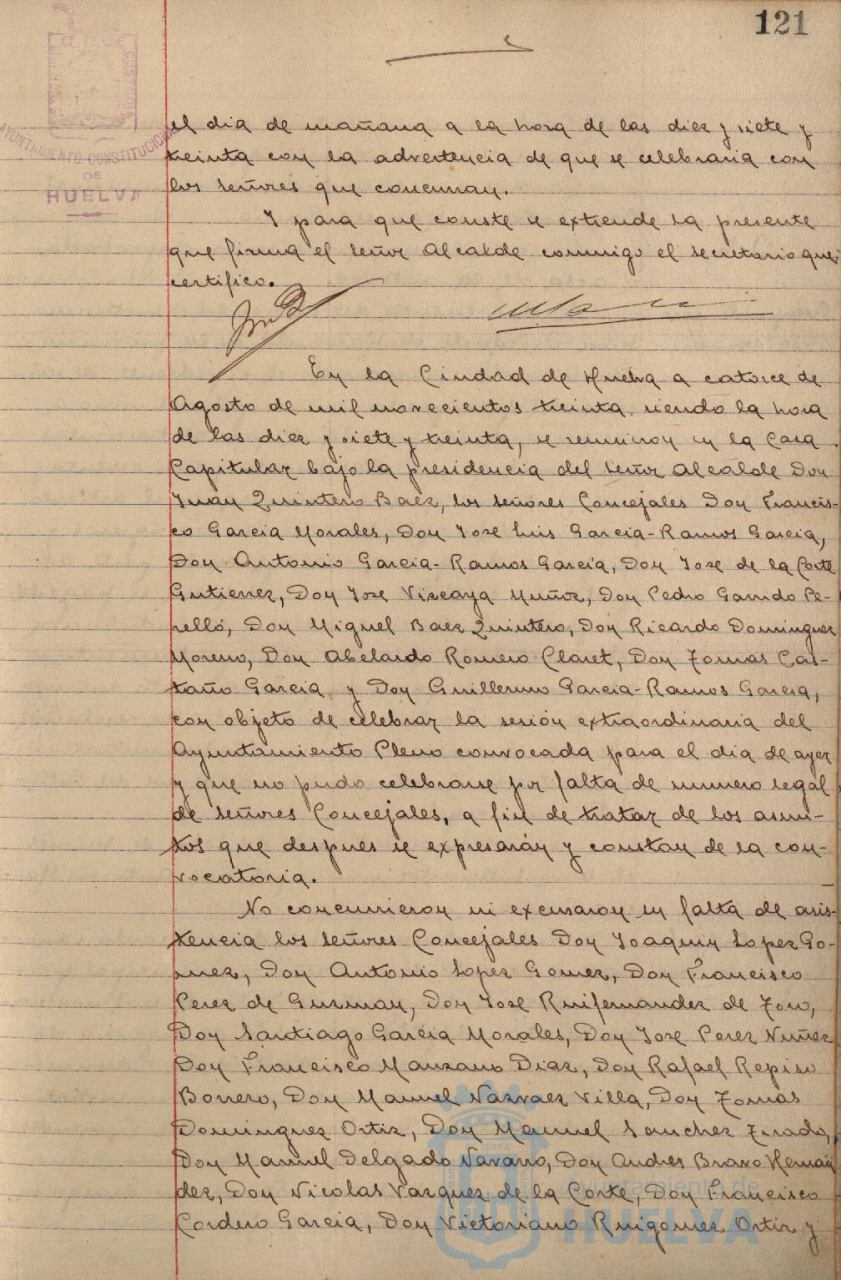 121
AYUNTAMIENTO CONSTITUCIONAL
DE
HUELVA
el dia de mañana a la hora de las diez y siete y
treinta con la advertencia de que se celebraria con
los señores que concurran.
Y para que conste se extiende la presente
que firma el señor Alcalde conmigo el secretario que
certifico.
En la Ciudad de Huelva a catorce de
Agosto de mil novecientos treinta, siendo la hora
de las diez y siete y treinta, se reunieron en la Casa
Capitular bajo la presidencia del señor Alcalde Don
Juan Quintero Baez, los señores Concejales Don Francis-
co Garcia Morales, Don Jose Luis Garcia-Ramos Garcia,
Don Antonio Garcia-Ramos Garcia, Don Jose de la Corte
Gutierrez, Don Jose Vizcaya Muñoz, Don Pedro Garrido Pe-
relló, Don Miguel Baez Quintero, Don Ricardo Dominguez
Moreno, Don Abelardo Romero Claret, Don Tomas Cas-
taño Garcia y Don Guillermo Garcia-Ramos Garcia,
con objeto de celebrar la sesión extraordinaria del
Ayuntamiento Pleno convocada para el dia de ayer
y que no pudo celebrarse por falta de numero legal
de señores Concejales, a fin de tratar de los asun-
tos que despues se expresarán y constan de la con-
vocatoria.
No concurrieron ni excusaron su falta de asis-
tencia los señores Concejales Don Joaquin Lopez Go-
mez, Don Antonio Lopez Gomez, Don Francisco
Perez de Guzman, Don Jose Ruifernandez de Toro,
Don Santiago Garcia Morales, Don Jose Perez Nuñez
Don Francisco Manzano Diaz, Don Rafael Repiso
Borrero, Don Manuel Narvaez Villa, Don Tomas
Dominguez Ortiz, Don Manuel Sanchez Tirado,
Don Manuel Delgado Navarro, Don Andres Bravo Hernan
dez, Don Nicolas Vazquez de la Corte, Don Francisco
Cordero Garcia, Don Victoriano Ruigomez Ortiz y
Ayuntamiento de
HUELVA